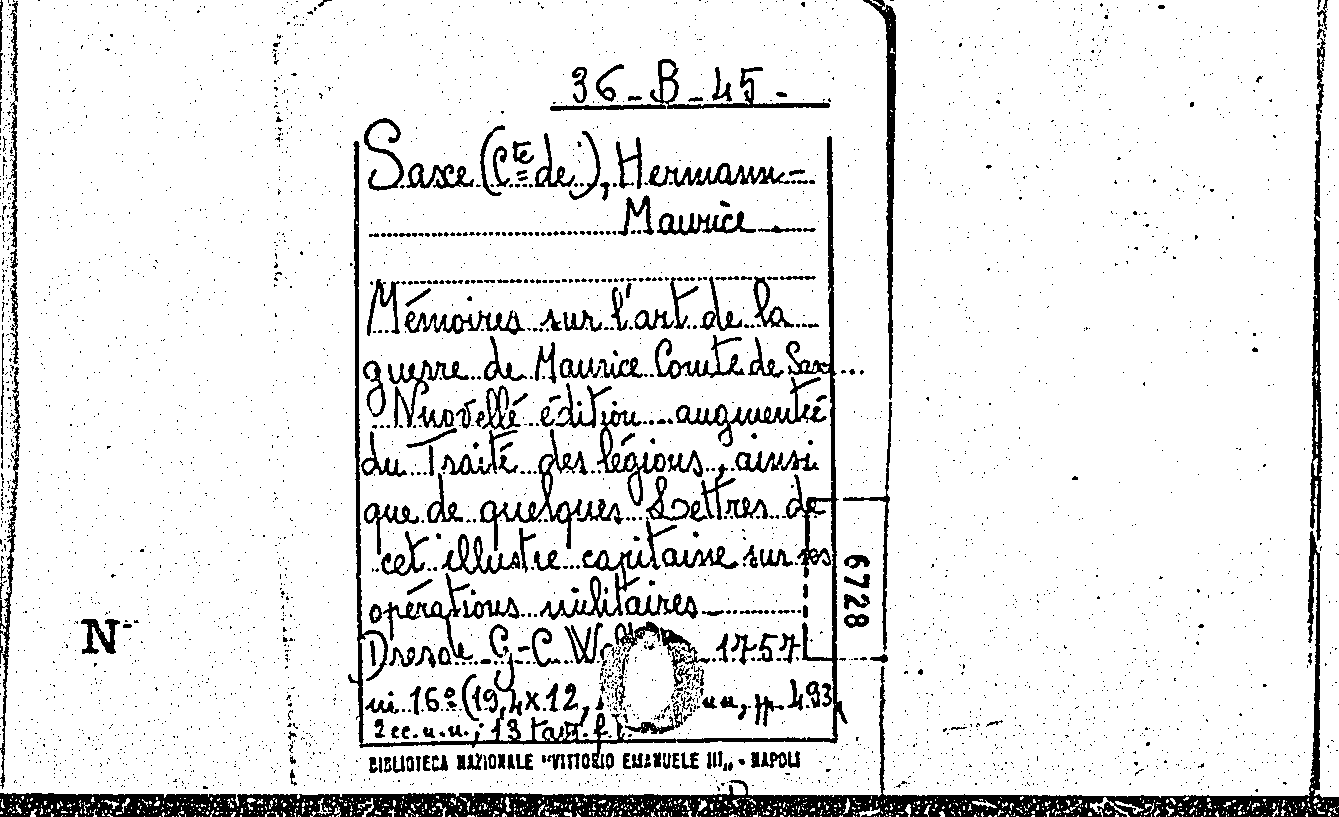 36-B-45-
Saxe (Cte de), Hermann-
Maurice.
Mémoires sur l'art de la
guerre de Maurice Comte de Saxe...
Nuovellé édition... augmentée
du Traité des légions, ainsi
que de quelques Lettres de
cet illustre capitaine sur ses
opérations militaires
Dresde G-C 1757
in 16º (19,4x12, pp. 493,
2 cc. n.n.; 13 tav. f.t.
6728
BIBLIOTECA NAZIONALE "VITTORIO EMANUELE III" - NAPOLI
N